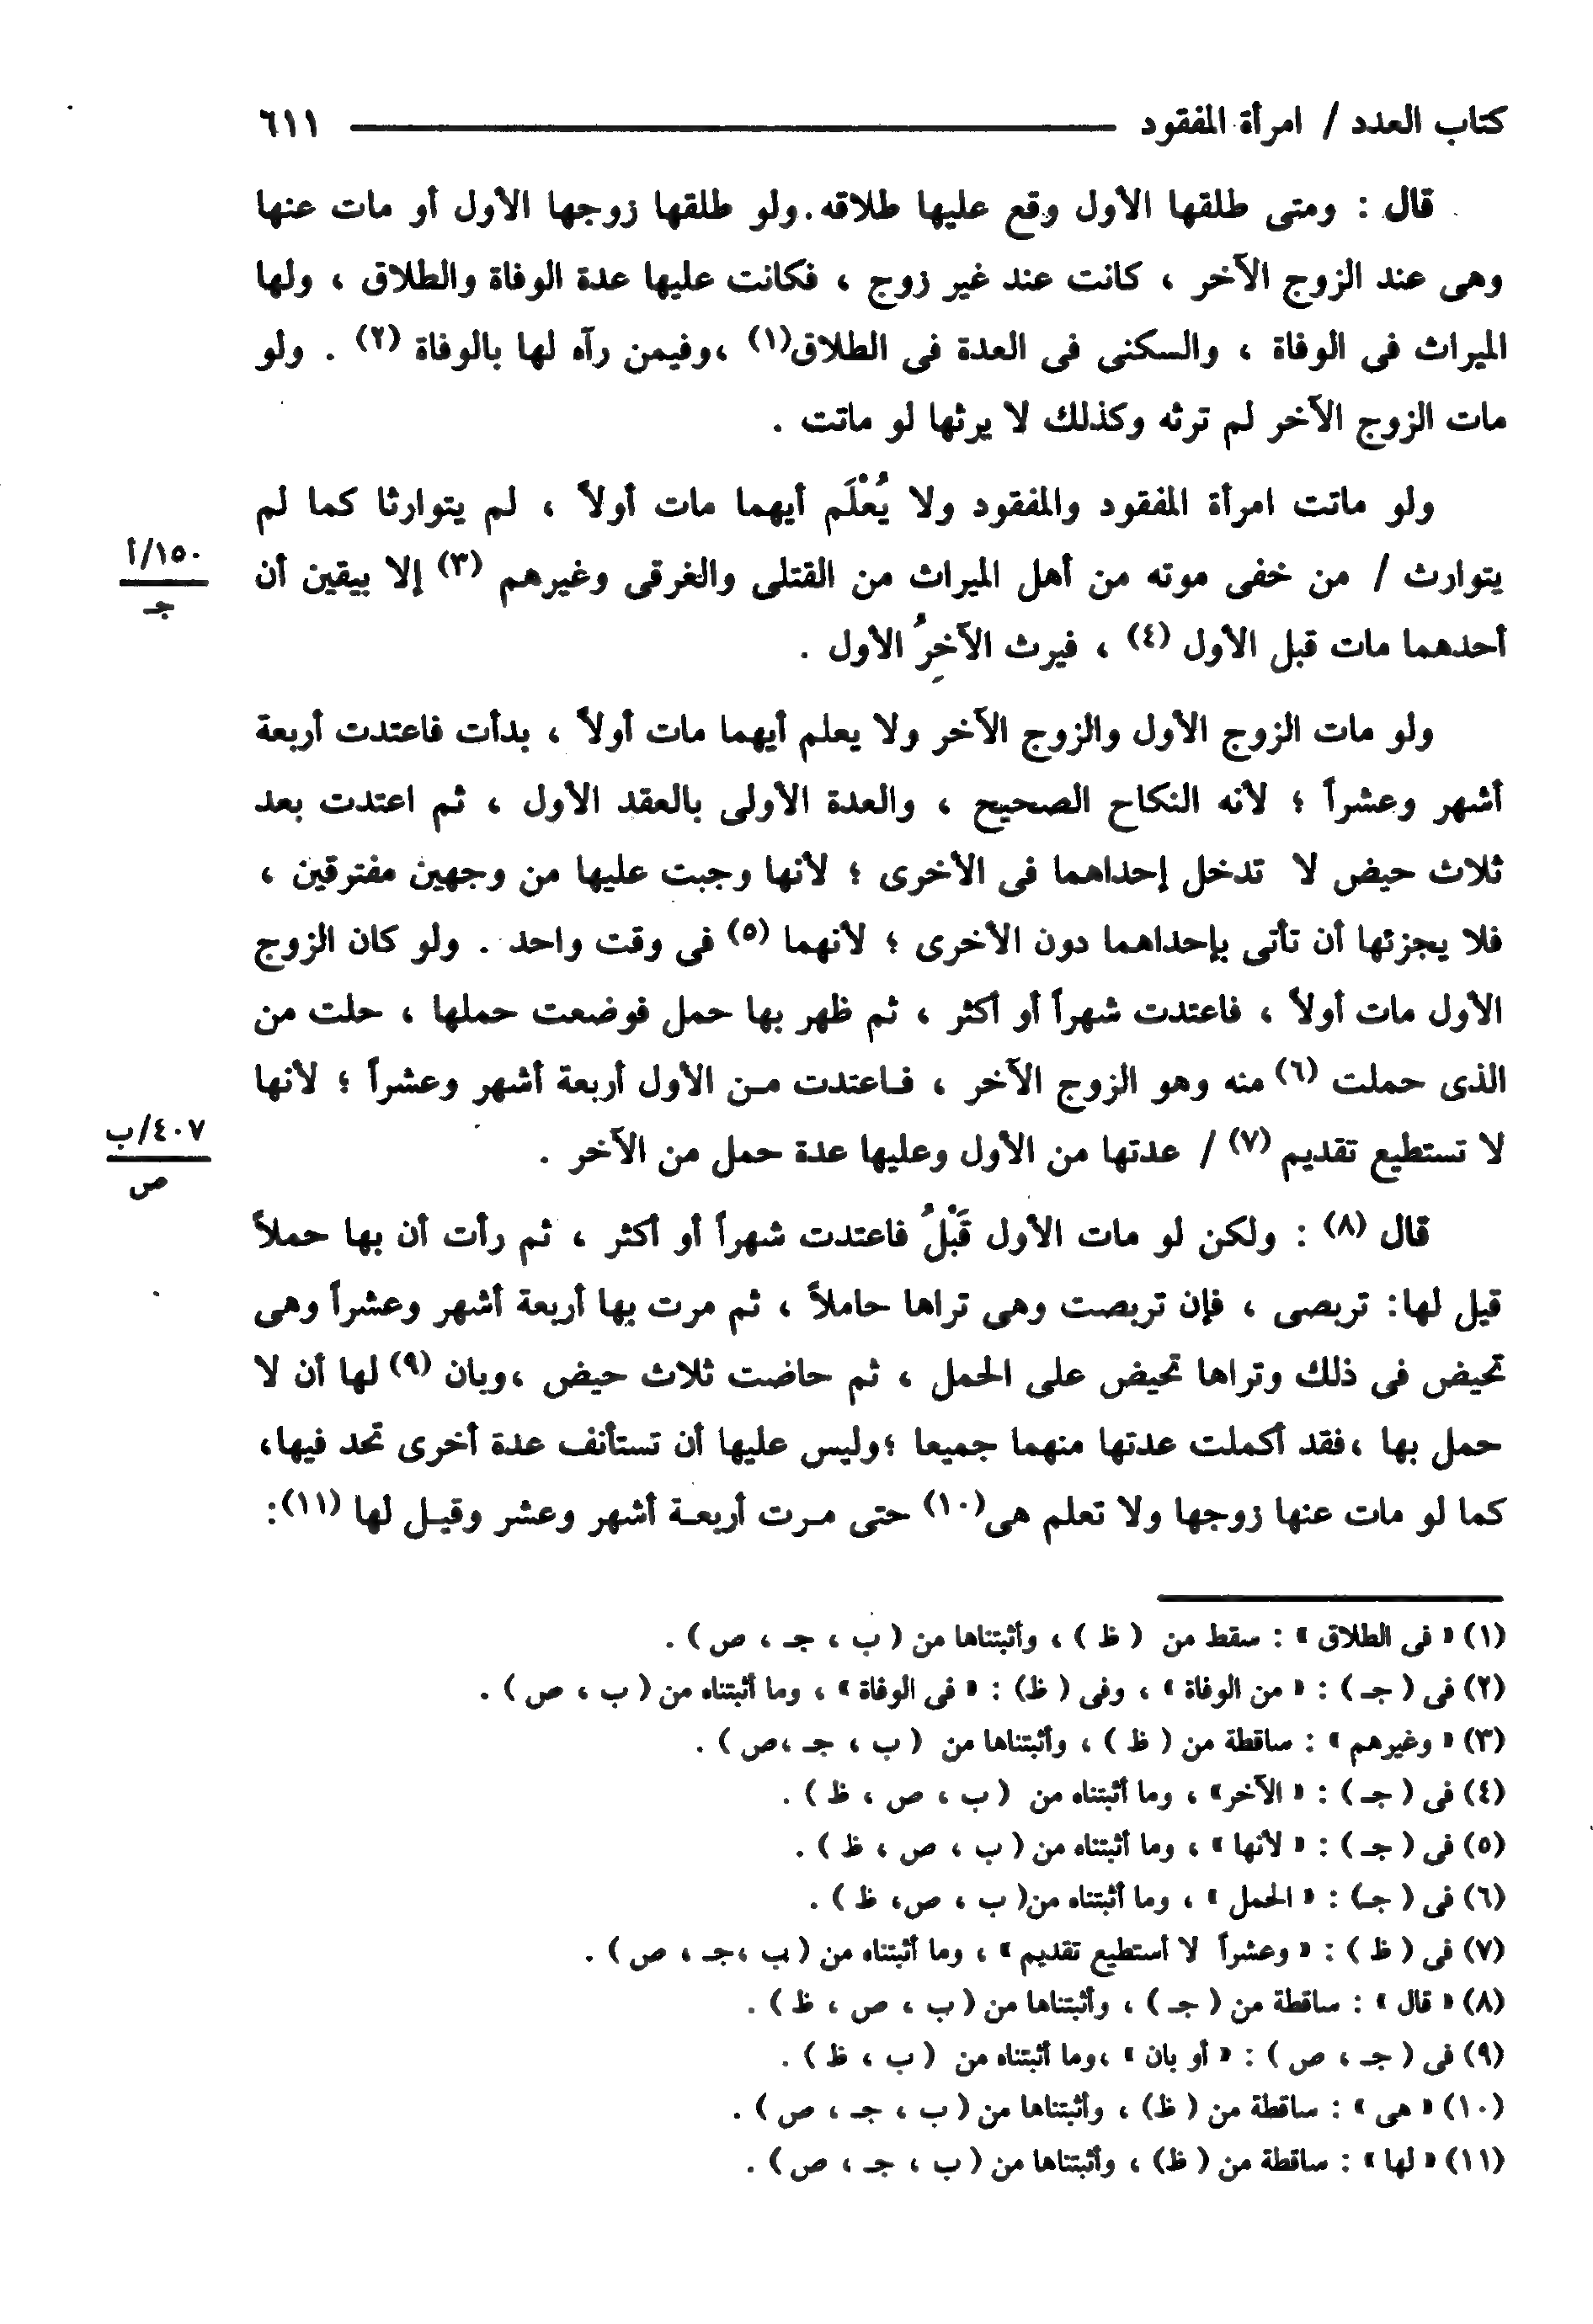 كتاب العدد / امرأة المفقود ــــــــــــــــــــــــــــ ٦١١
قال : ومتى طلقها الأول وقع عليها طلاقه. ولو طلقها زوجها الأول أو مات عنها
وهى عند الزوج الآخر ، كانت عند غير زوج ، فكانت عليها عدة الوفاة والطلاق ، ولها
الميراث فى الوفاة ، والسكنى فى العدة فى الطلاق(١) ،وفيمن رآه لها بالوفاة (٢) . ولو
مات الزوج الآخر لم ترثه وكذلك لا يرثها لو ماتت .
ولو ماتت امرأة المفقود والمفقود ولا يُعْلَم أيهما مات أولاً ، لم يتوارثا كما لم
يتوارث / من خفى موته من أهل الميراث من القتلى والغرقى وغيرهم (٣) إلا بيقين أن
١٥٠/أ
جـ
أحدهما مات قبل الأول (٤) ، فيرث الآخِرُ الأول .
ولو مات الزوج الأول والزوج الآخر ولا يعلم أيهما مات أولاً ، بدأت فاعتدت أربعة
أشهر وعشراً ؛ لأنه النكاح الصحيح ، والعدة الأولى بالعقد الأول ، ثم اعتدت بعد
ثلاث حيض لا تدخل إحداهما فى الأخرى ؛ لأنها وجبت عليها من وجهين مفترقين ،
فلا يجزئها أن تأتى بإحداهما دون الأخرى ؛ لأنهما (٥) فى وقت واحد . ولو كان الزوج
الأول مات أولاً ، فاعتدت شهراً أو أكثر ، ثم ظهر بها حمل فوضعت حملها ، حلت من
الذى حملت (٦) منه وهو الزوج الآخر ، فـاعتدت مـن الأول أربعة أشهر وعشراً ؛ لأنها
لا تستطيع تقديم (٧) / عدتها من الأول وعليها عدة حمل من الآخر .
٤٠٧/ب
ص
قال (٨) : ولكن لو مات الأول قَبْلُ فاعتدت شهراً أو أكثر ، ثم رأت أن بها حملاً
قيل لها: تربصى ، فإن تربصت وهى تراها حاملاً ، ثم مرت بها أربعة أشهر وعشراً وهى
تحيض فى ذلك وتراها تحيض على الحمل ، ثم حاضت ثلاث حيض ،وبان (٩) لها أن لا
حمل بها ،فقد أكملت عدتها منهما جميعا ؛وليس عليها أن تستأنف عدة أخرى تحد فيها،
كما لو مات عنها زوجها ولا تعلم هى(١٠) حتى مـرت أربعـة أشهر وعشر وقيـل لها (١١):
(١) « فى الطلاق » : سقط من ( ظ ) ، وأثبتناها من ( ب ، جـ ، ص ) .
(٢) فى ( جـ ) : « من الوفاة » ، وفى ( ظ) : « فى الوفاة » ، وما أثبتناه من ( ب ، ص ) .
(٣) « وغيرهم » : ساقطة من ( ظ ) ، وأثبتناها من ( ب ، جـ ،ص ) .
(٤) فى ( جـ ) : « الآخر» ، وما أثبتناه من ( ب ، ص ، ظ ) .
(٥) فى ( جـ ) : « لأنها » ، وما أثبتناه من ( ب ، ص ، ظ ) .
(٦) فى ( جـ) : « الحمل » ، وما أثبتناه من( ب ، ص، ظ ) .
(٧) فى ( ظ ) : « وعشراً لا أستطيع تقديم » ، وما أثبتناه من ( ب ،جـ ، ص ) .
(٨) « قال » : ساقطة من ( جـ ) ، وأثبتناها من ( ب ، ص ، ظ ) .
(٩) فى ( جـ ، ص ) : « أو بان » ،وما أثبتناه من ( ب ، ظ ) .
(١٠) « هى » : ساقطة من ( ظ) ، وأثبتناها من ( ب ، جـ ، ص ) .
(١١) « لها » : ساقطة من ( ظ) ، وأثبتناها من ( ب ، جـ ، ص ) .